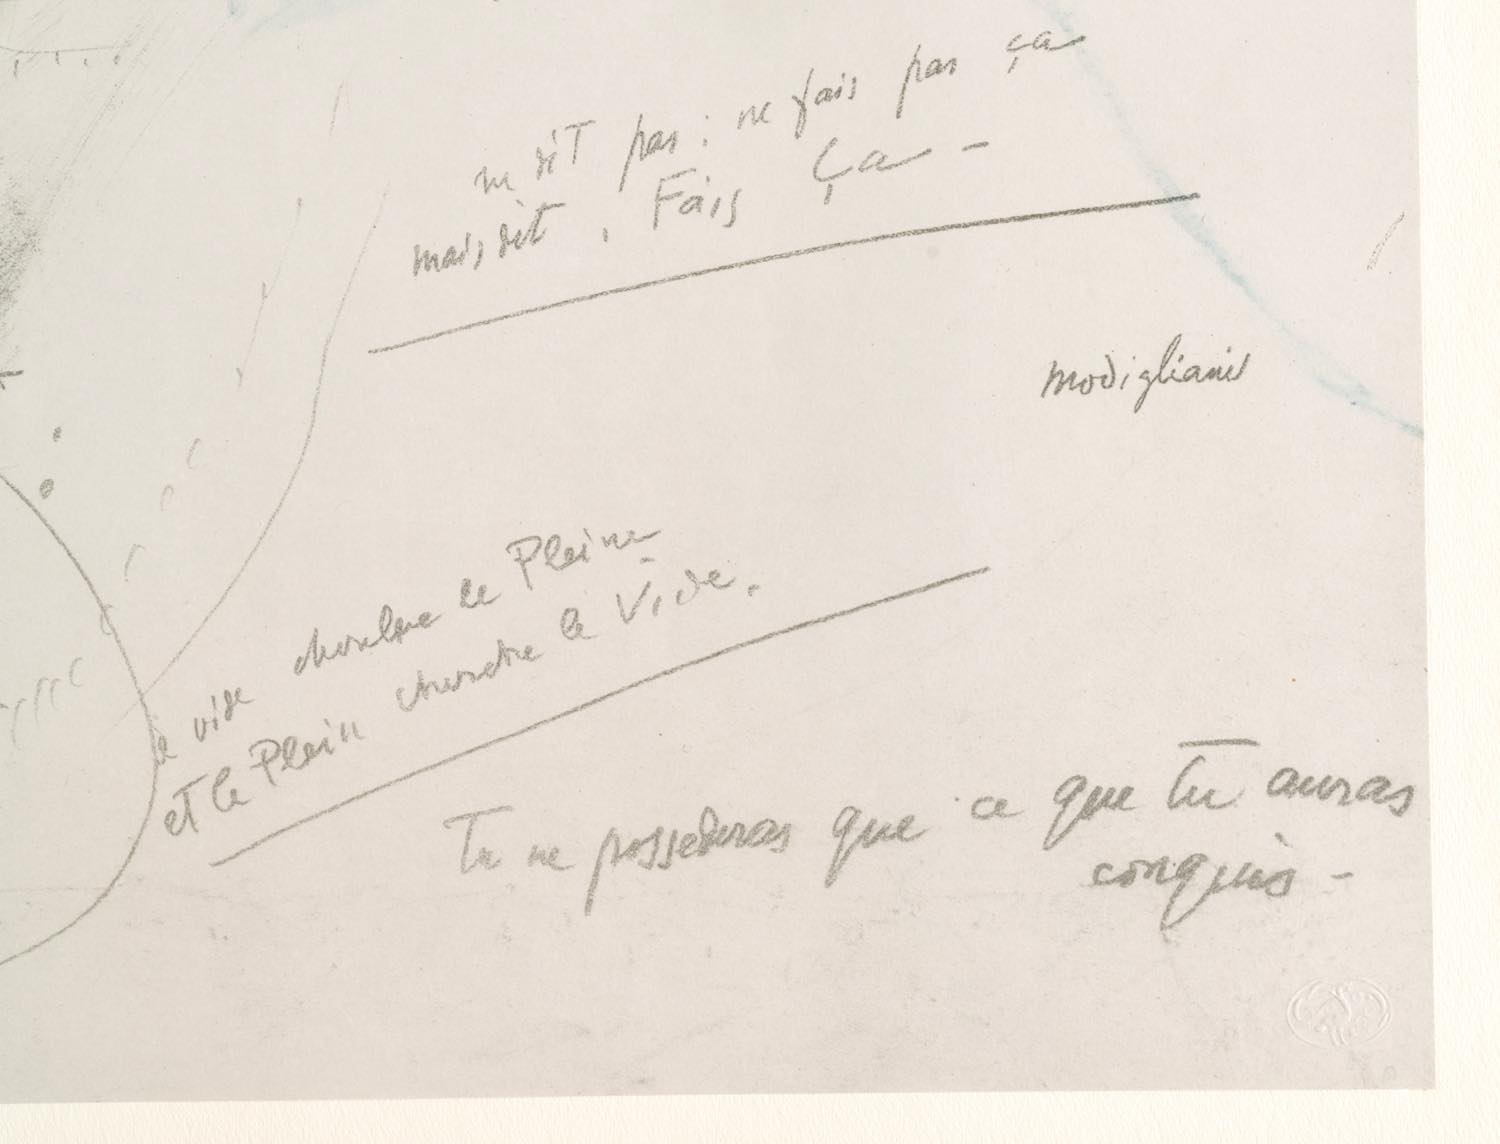 ne dit pas : ne fais pas ça
mais dit . Fais Ça -
modigliani
le vide cherche le Plein
et le Plein cherche le Vide.
Tu ne possederas que ce que tu auras
conquis -